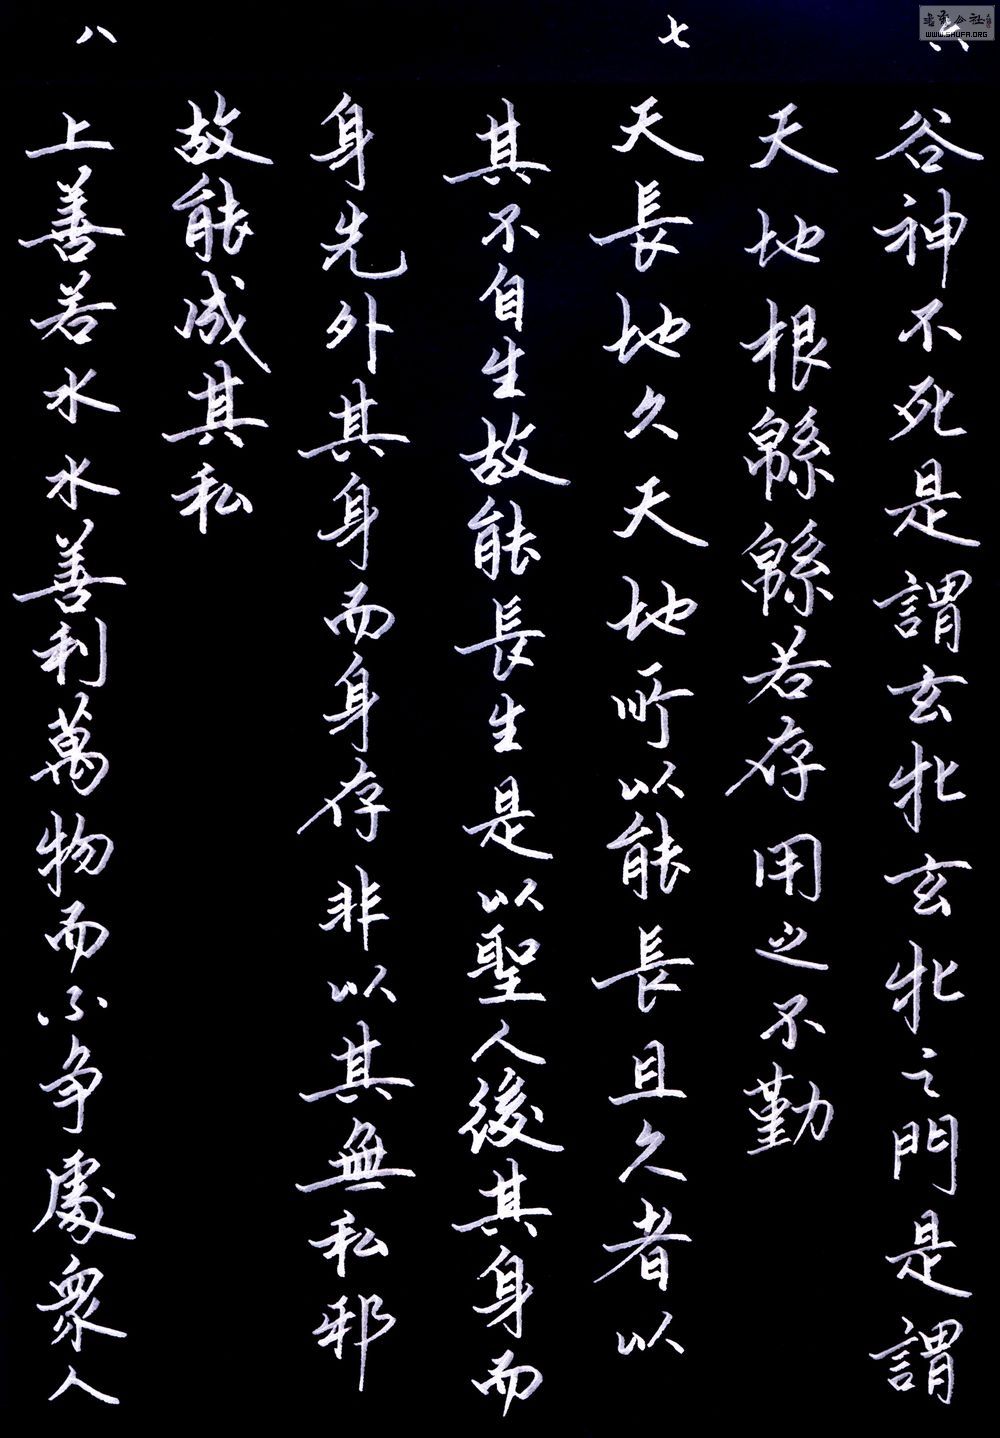 六
谷神不死是謂玄牝玄牝之門是謂
天地根緜緜若存用之不勤
七
天長地久天地所以能長且久者以
其不自生故能長生是以聖人後其身而
身先外其身而身存非以其無私邪
故能成其私
八
上善若水水善利萬物而不争處衆人
WWW.SHUFA.ORG